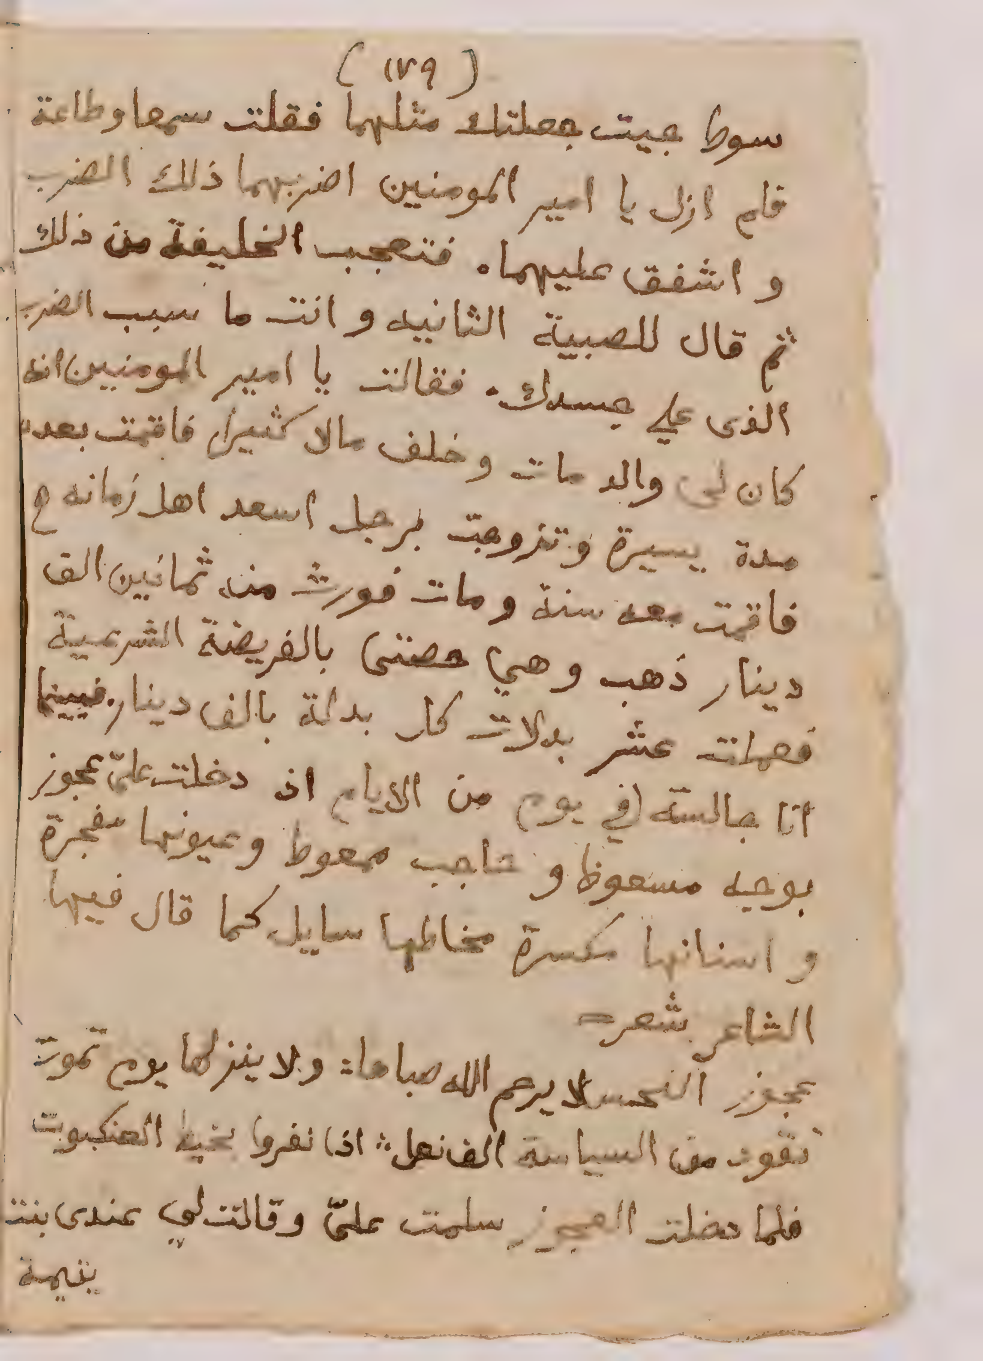 (١٧٩)
سوط جيت جعلتك مثلهما فقلت سمعا وطاعة
فلم ازل يا امير المومنين اضربهما ذلك الضرب
و اشفق عليهما. فتعجب الخليفة من ذلك
ثم قال للصبية الثانيه و انت ما سبب الضرب
الذى علي جسدك. فقالت يا امير المومنين انه
كان لى والد مات وخلف مالا كثيرا فاقمت بعده
مدة يسيرة وتزوجت برجل اسعد اهل زمانه
فاقمت معه سنة ومات فورثت منه ثمانين الف
دينار ذهب وهي حصتى بالفريضة الشرعية
فعملت عشر بدلات كل بدلة بالف دينار. فبينما
انا جالسة في يوم من الايام اذ دخلت عليّ عجوز
بوجه مسعوط و حاجب ممعوط وعيونها مفجرة
و اسنانها مكسرة مخاطها سايل كما قال فيها
الشاعر شعر
عجوز النحس لا يرحم الله صباها ولا ينزلها يوم تموت
تقود من السياسة الف نغل اذا نفروا بخيط العنكبوت
فلما دخلت العجوز سلمت عليّ وقالت لي عندى بنت
يتيمة